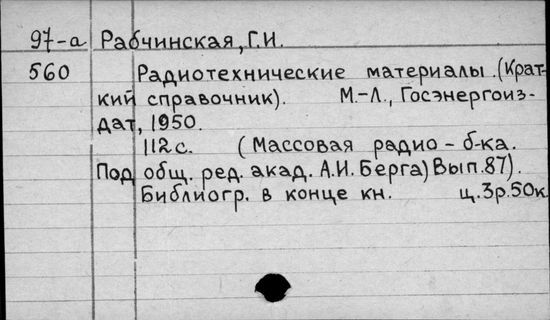 97-а Рабчинская, Г.И.
560 Радиотехнические материалы. (Крат-
кий справочник). М.-Л., Госэнергоиз-
дат, 1950.
112 с. (Массовая радио-б-ка.
Под общ. ред. акад. А.И. Берга) Вып. 87).
Библиогр. в конце кн. ц. 3р. 50к